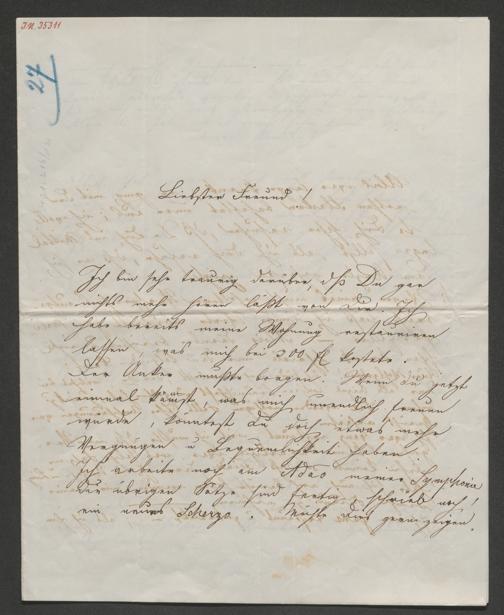 I.N. 35311
27
Liebster Freund!
Ich bin sehr traurig darüber, daß Du gar
nichts mehr hören läßt von Dir. Ich
habe bereits meine Wohnung restauriren
lassen was mich bei 300 fl kostete.
Der Anker mußte borgen. Wenn Du jetzt
einmal kämst was mich unendlich freuen
würde, könntest Du doch etwas mehr
Vergnügen u Bequemlichkeit haben.
Ich arbeite noch am Adao meiner Symphonie
die übrigen Sätze sind fertig, schrieb noch
ein neues Scherzo. Möchte Dirs gern zeigen.